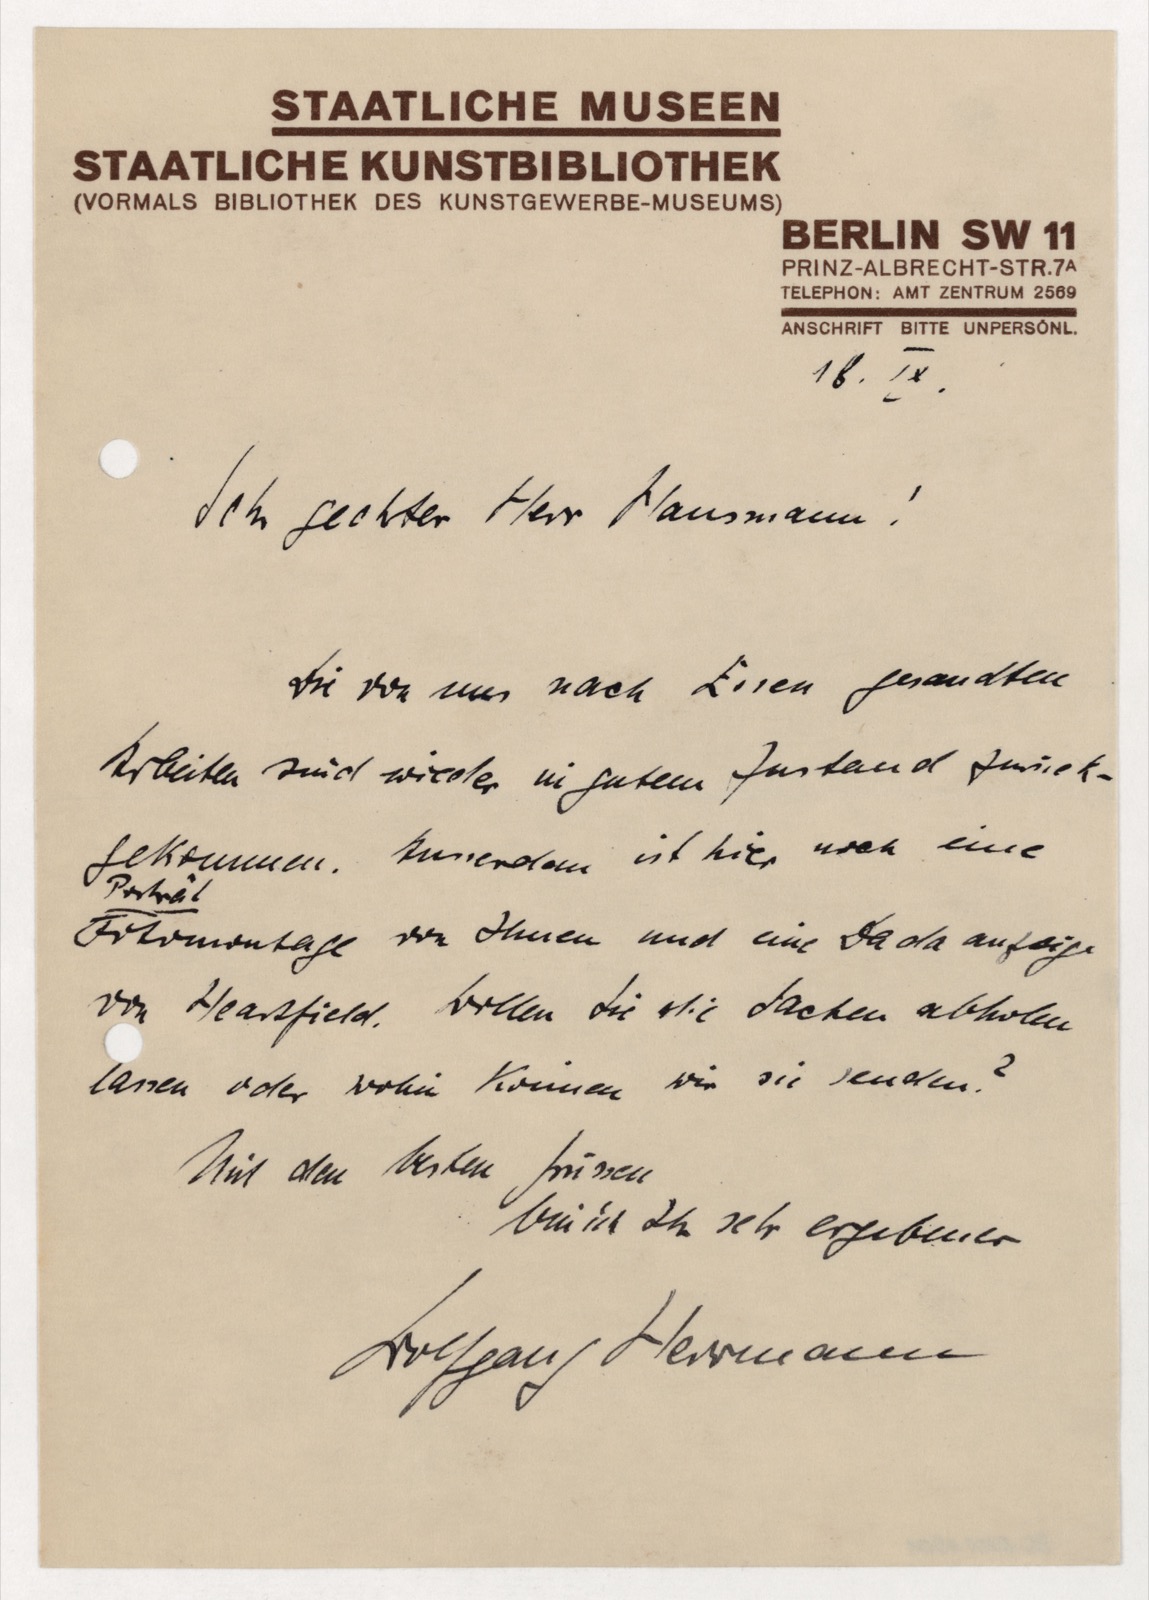 STAATLICHE MUSEEN
STAATLICHE KUNSTBIBLIOTHEK
(VORMALS BIBLIOTHEK DES KUNSTGEWERBE-MUSEUMS)
BERLIN SW 11
PRINZ-ALBRECHT-STR. 7A
TELEPHON: AMT ZENTRUM 2569
ANSCHRIFT BITTE UNPERSÖNL.
18. IX.
Sehr geehrter Herr Hausmann!
Die von uns nach Essen gesandten
Arbeiten sind wieder in gutem Zustand zurück-
gekommen. Ausserdem ist hier noch eine
Porträt
Fotomontage von Ihnen und eine Dada anzeige
von Heartfield. Wollen Sie die Sachen abholen
lassen oder wohin können wir sie senden?
Mit den besten Grüssen
bin ich Ihr sehr ergebener
Wolfgang Herrmann